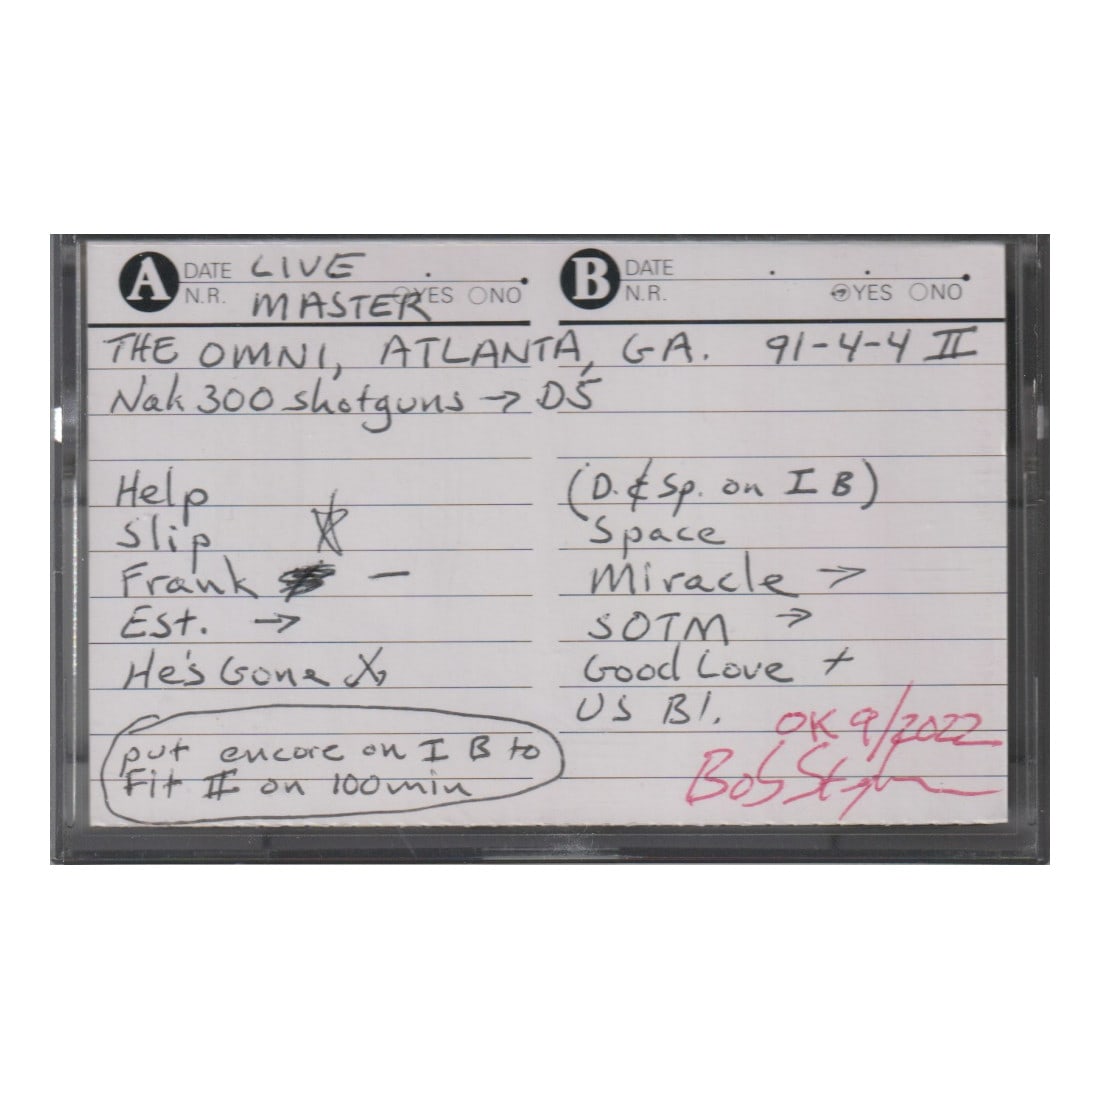 A DATE LIVE
N.R. MASTER YES NO
B DATE
N.R. YES NO
THE OMNI, ATLANTA, GA. 91-4-4 II
Nak 300 shotguns → D5
Help
Slip
Frank —
Est. →
He's Gone X
put encore on I B to
Fit II on 100min
(D. & Sp. on I B)
Space
Miracle →
SOTM →
Good Love +
US Bl.
OK 9/2022
Bob